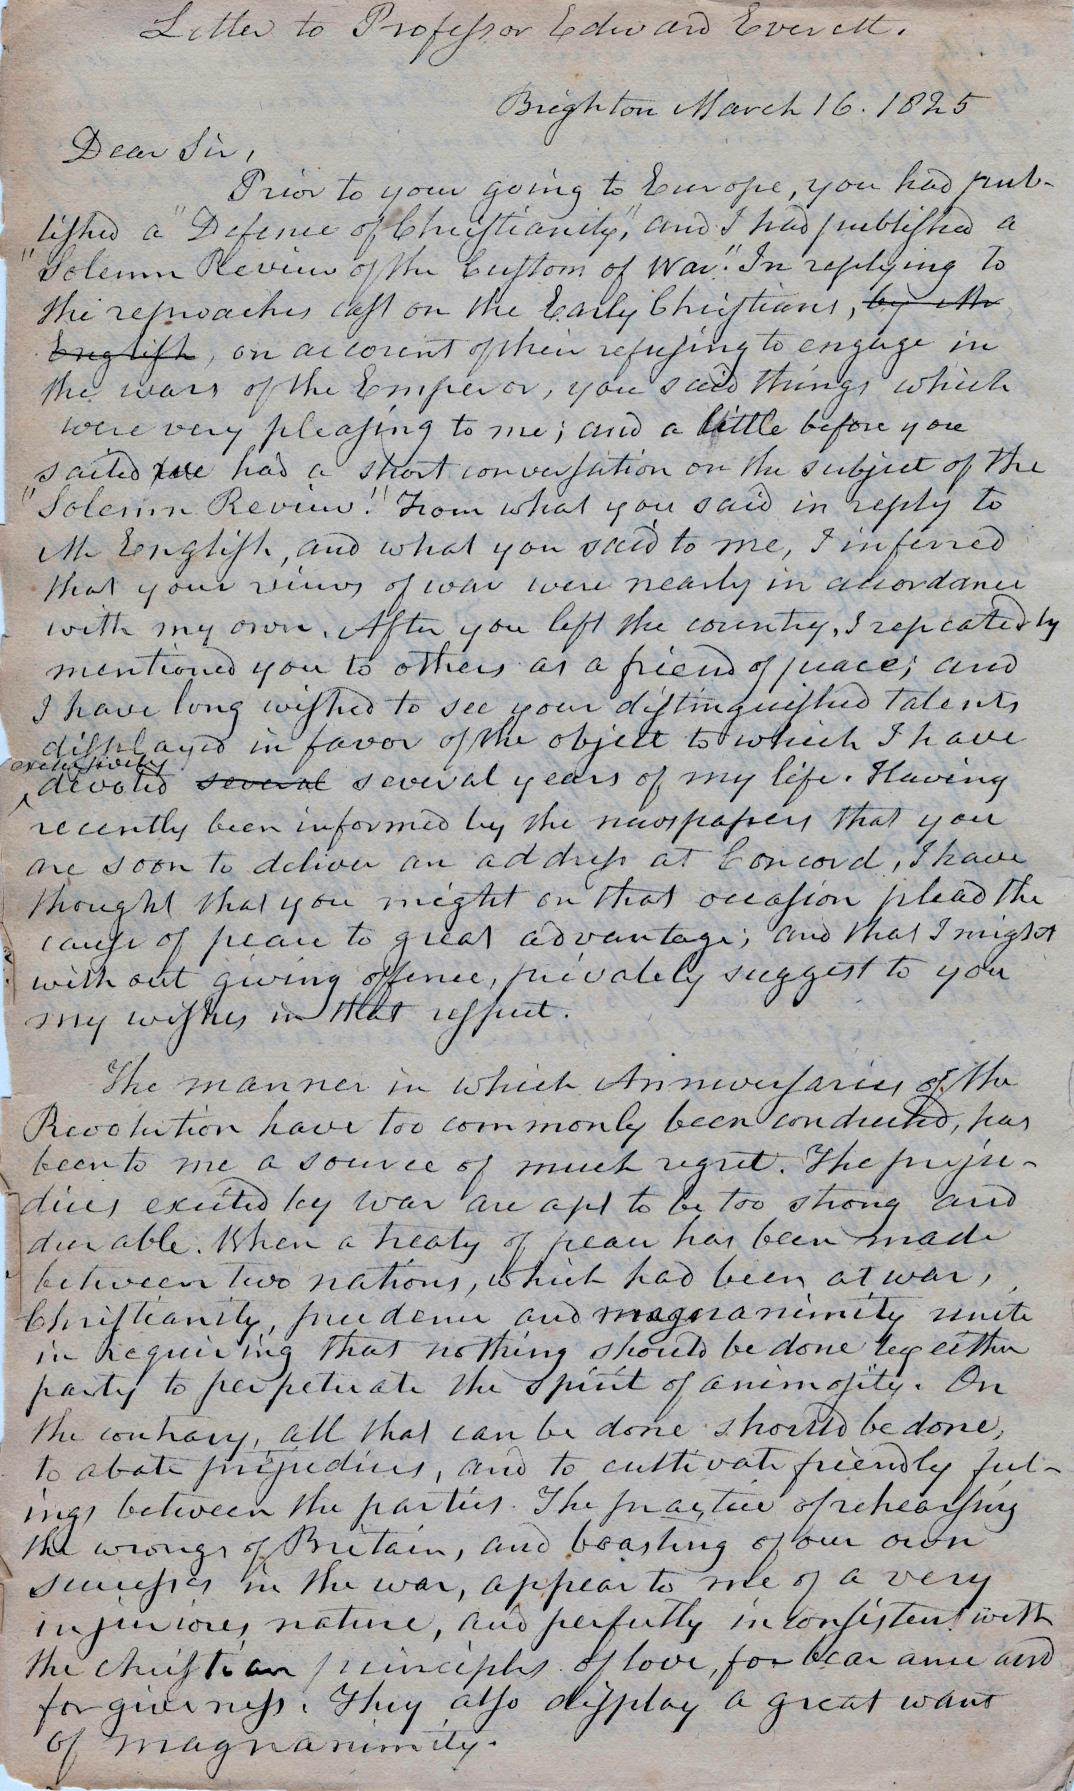 Letter to Professor Edward Everett.
Brighton March 16. 1825
Dear Sir,
Prior to your going to Europe, you had pub-
lished a "Defence of Christianity", and I had published a
"Solemn Review of the Custom of War." In replying to
the reproaches cast on the Early Christians, by Mr
English, on account of their refusing to engage in
the wars of the Emperor, you said things which
were very pleasing to me; and a little before you
sailed we had a short conversation on the subject of the
"Solemn Review." From what you said in reply to
Mr English, and what you said to me, I inferred
that your views of war were nearly in accordance
with my own. After you left the country, I repeatedly
mentioned you to others as a friend of peace; and
I have long wished to see your distinguished talents
displayed in favor of the object to which I have
exclusively
devoted several several years of my life. Having
recently been informed by the newspapers that you
are soon to deliver an address at Concord, I have
thought that you might on that occasion plead the
cause of peace to great advantage; and that I might
without giving offence, privately suggest to you
my wishes in that respect.
The manner in which Anniversaries of the
Revolution have too commonly been conducted, has
been to me a source of much regret. The preju-
dices excited by war are apt to be too strong and
durable. When a treaty of peace has been made
between two nations, which had been at war,
Christianity, prudence and magnanimity unite
in requiring that nothing should be done by either
party to perpetuate the spirit of animosity. On
the contrary, all that can be done should be done,
to abate prejudices, and to cultivate friendly feel-
ings between the parties. The practice of rehearsing
the wrongs of Britain, and boasting of our own
successes in the war, appear to me of a very
injurious nature, and perfectly inconsistent with
the christian principles of love, forbearance and
forgiveness. They also display a great want
of magnanimity.